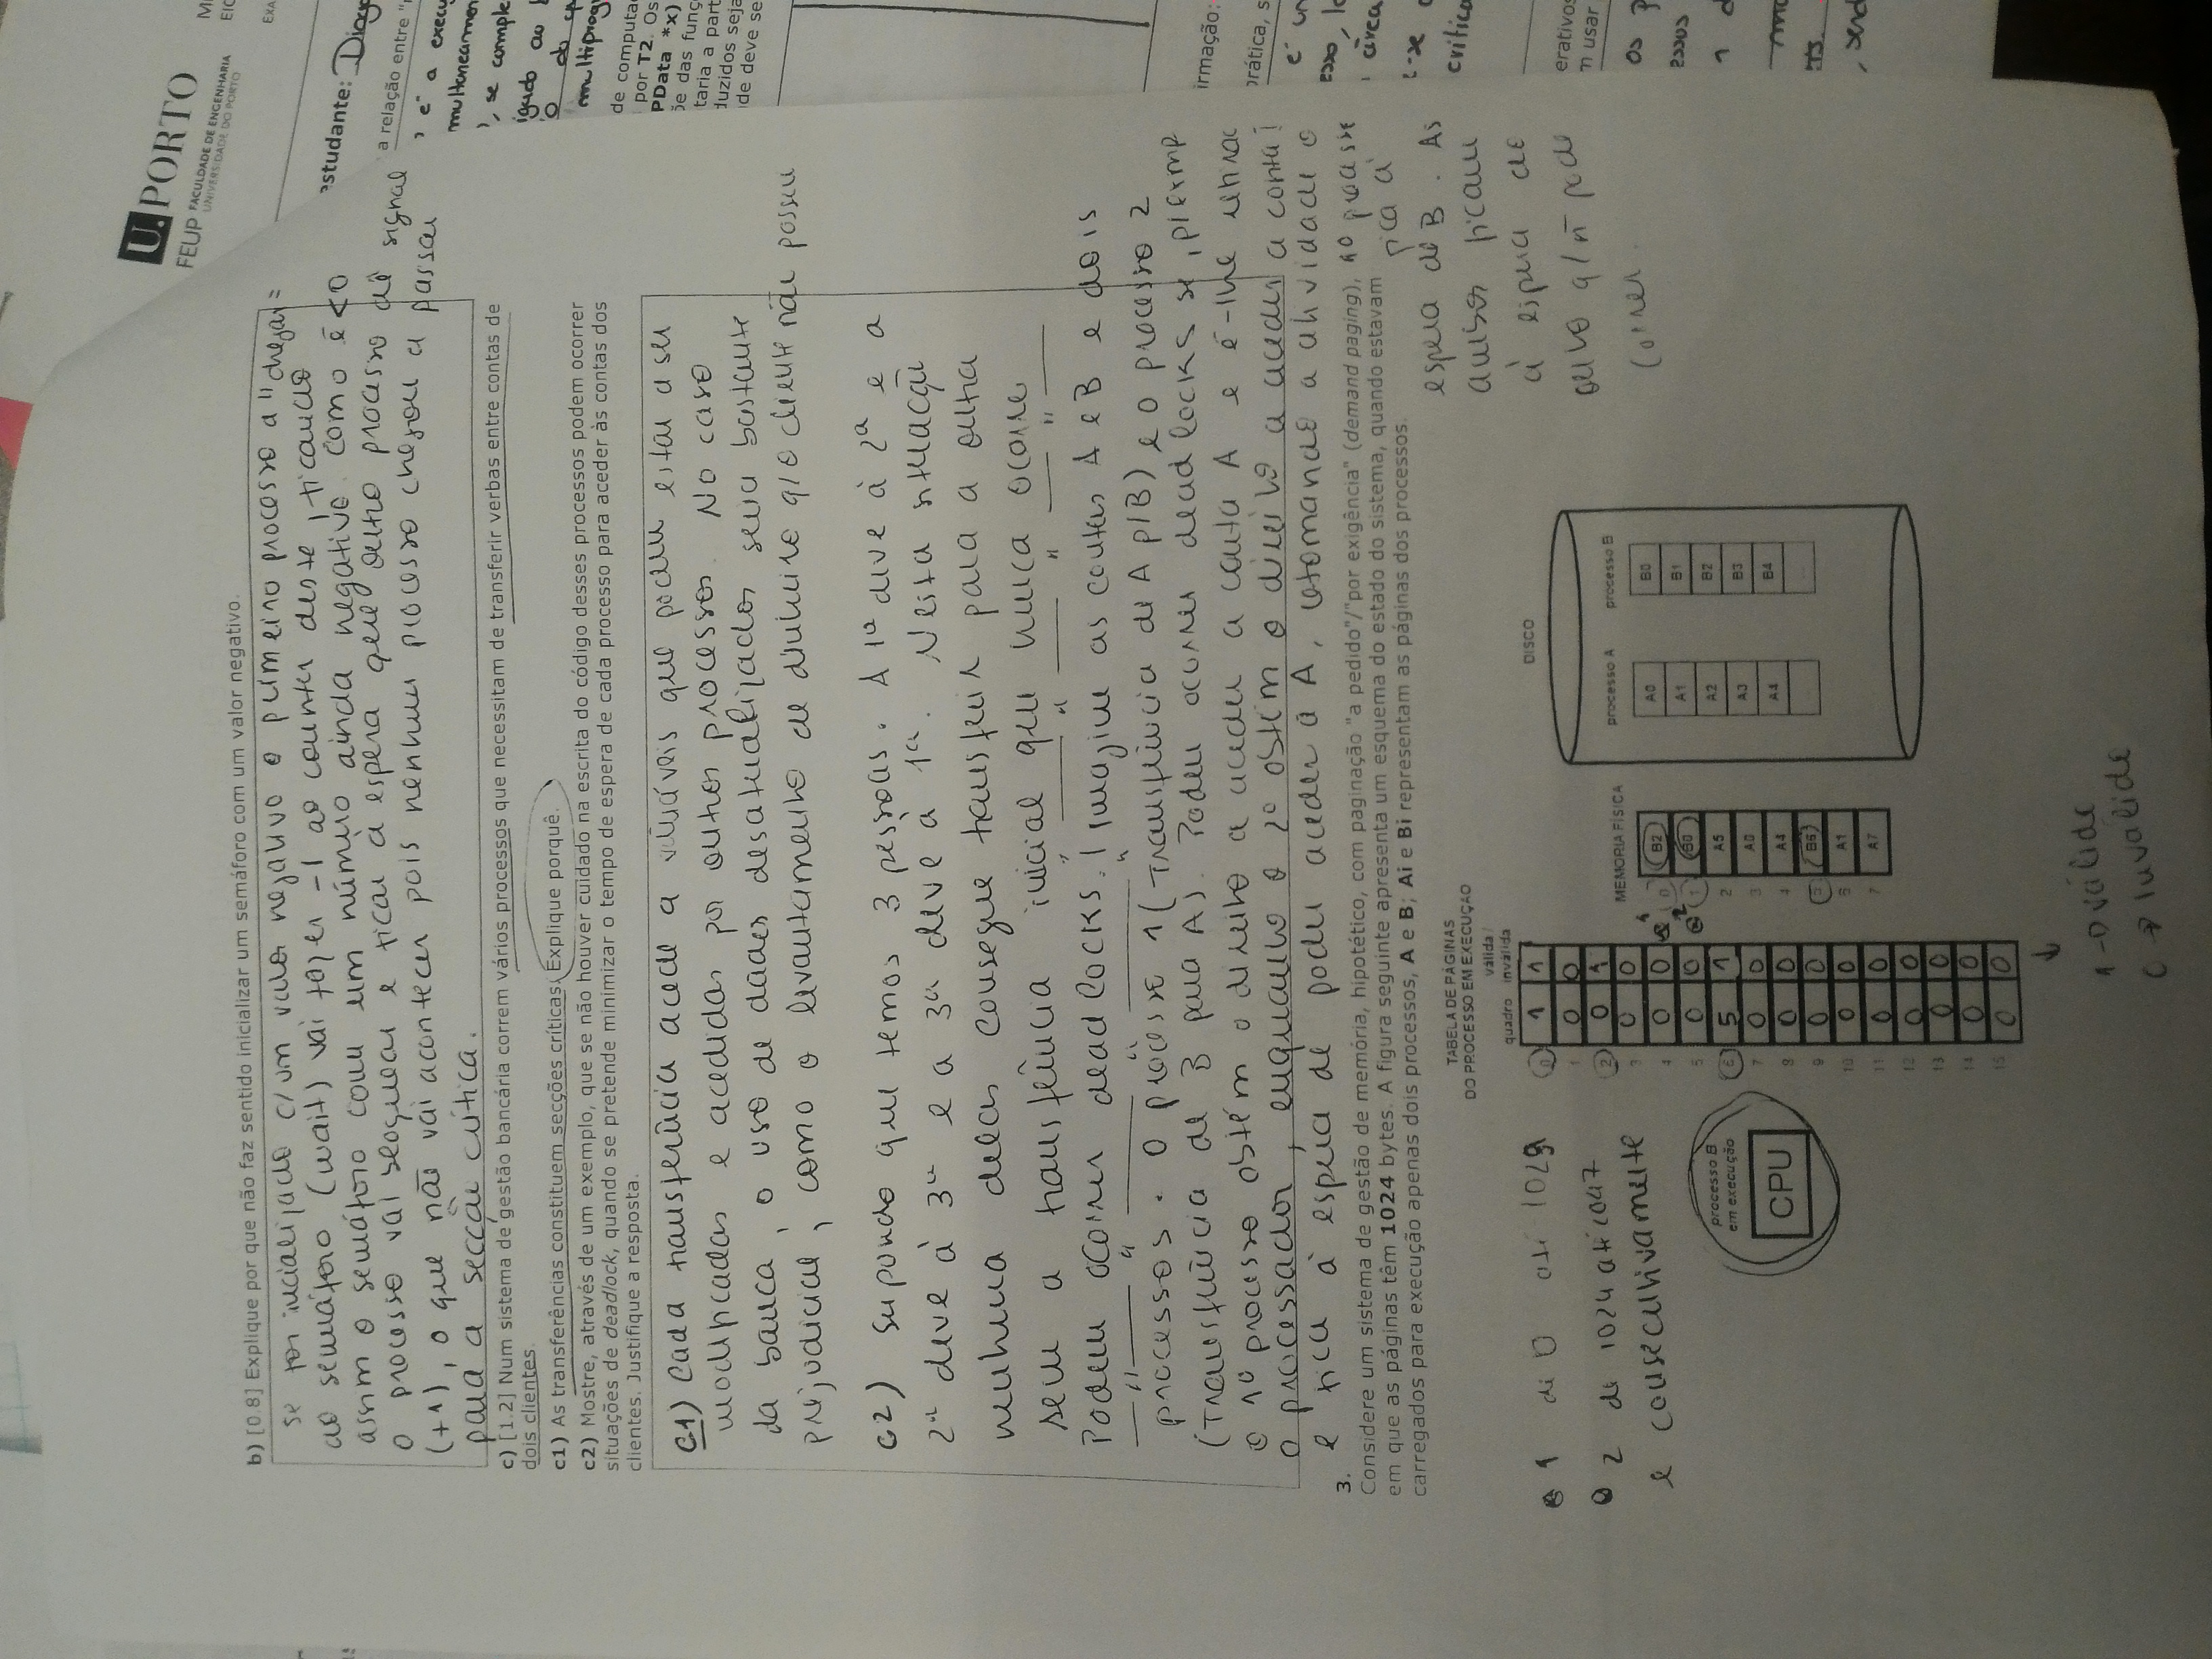 b) [0.8] Explique por que não faz sentido inicializar um semáforo com um valor negativo.
se for inicializado c/ um valor negativo o primeiro processo a "chegar"
ao semáforo (wait) vai fazer -1 ao counter deste, ficando
assim o semáforo com um número ainda negativo. Como é <0
o processo vai bloquear e ficar à espera que outro processo dê signal
(+1), o que não vai acontecer pois nenhum processo chegou a passar
para a secção crítica.
c) [1.2] Num sistema de gestão bancária correm vários processos que necessitam de transferir verbas entre contas de
dois clientes.
c1) As transferências constituem secções críticas. Explique porquê.
c2) Mostre, através de um exemplo, que se não houver cuidado na escrita do código desses processos podem ocorrer
situações de deadlock, quando se pretende minimizar o tempo de espera de cada processo para aceder às contas dos
clientes. Justifique a resposta.
c1) Cada transferência acede a variáveis que podem estar a ser
modificadas e acedidas por outros processos. No caso
da banca, o uso de dados desatualizados seria bastante
prejudicial, como o levantamento de dinheiro q/ o cliente não possui
c2) supondo que temos 3 pessoas. A 1ª deve à 2ª e a
2ª deve à 3ª e a 3ª deve à 1ª. Nesta situação
nenhuma delas consegue transferir para a outra
sem a transferência inicial que nunca ocorre
Podem ocorrer deadlocks. Imagine as contas A e B e dois
processos. O processo 1 (Transferência de A p/B) e o processo 2
(Transferência de B para A). Podem ocorrer deadlocks se, p/exmp
o 1º processo obtém o direito a aceder a conta A e é-lhe retirado
o processador, enquanto o 2º obtém o direito a aceder a conta B
e fica à espera de poder aceder à A, retomando a atividade o
1º processo fica à
espera de B. As
ambos ficam
à espera de
outro q/ ñ pode
correr.
3.
Considere um sistema de gestão de memória, hipotético, com paginação "a pedido"/"por exigência" (demand paging),
em que as páginas têm 1024 bytes. A figura seguinte apresenta um esquema do estado do sistema, quando estavam
carregados para execução apenas dois processos, A e B; Ai e Bi representam as páginas dos processos.
1 di 0 até 1029
2 di 1024 até 1047
e consecutivamente
processo B
em execução
CPU
TABELA DE PÁGINAS
DO PROCESSO EM EXECUÇÃO
quadro válida/inválida
0 1 1
1 0 0
2 0 1
3 0 0
4 0 0
5 0 0
6 5 1
7 0 0
8 0 0
9 0 0
10 0 0
11 0 0
12 0 0
13 0 0
14 0 0
15 0 0
1 → válido
0 → invalido
MEMÓRIA FÍSICA
0 B2
1 B0
2 A5
3 A0
4 A4
5 B6
6 A1
7 A7
DISCO
processo A
A0
A1
A2
A3
A4
...
processo B
B0
B1
B2
B3
B4
...
U.PORTO
FEUP FACULDADE DE ENGENHARIA
UNIVERSIDADE DO PORTO
EXA
studante:
a relação entre
, é a execu
multoneamen
, se comple
igado ao
multiprog
de computa
por T2. Os
PData *x)
õe das funç
taria a part
duzidos seja
de deve se
irmação:
prática, s
é um
área
critica
erativos
n usar
os p
essos